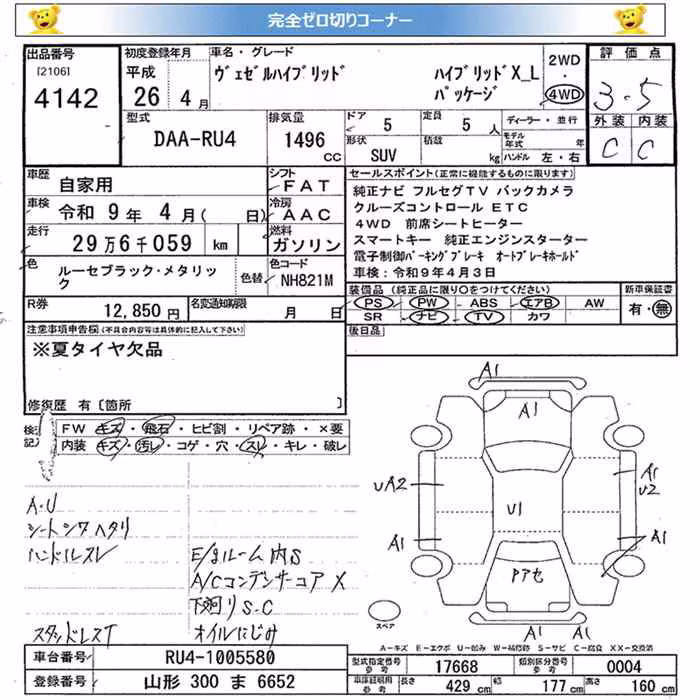 完全ゼロ切りコーナー
出品番号
[2106]
4142
初度登録年月
平成
26 4月
車名・グレード
ヴェゼルハイブリッド
ハイブリッドX_L
パッケージ
2WD
・
4WD
評価点
3.5
外装 内装
C C
型式
DAA-RU4
排気量
1496
CC
ドア
5
定員
5人
形状
SUV
積載
kg
ディーラー・並行
モデル年式
年
ハンドル 左・右
車歴
自家用
シフト
FAT
車検
令和 9年 4月( 日)
冷房
AAC
走行
29万6千059 km
燃料
ガソリン
色
ルーセブラック・メタリック
色替
色コード
NH821M
R券
12,850円
名変通知期限
月 日
セールスポイント(正常に機能するものに限ります)
純正ナビ フルセグTV バックカメラ
クルーズコントロール ETC
4WD 前席シートヒーター
スマートキー 純正エンジンスターター
電子制御パーキングブレーキ オートブレーキホールド
車検:令和9年4月3日
装備品(純正品に限り○をつけてください)
PS PW ABS エアB AW
SR ナビ TV カワ
新車保証書
有・無
後日品
注意事項申告欄(不具合内容等は具体的に記入して下さい)
※夏タイヤ欠品
修復歴 有〔箇所 〕
FW キズ・飛石・ヒビ割・リペア跡・×要
内装 キズ・汚レ・コゲ・穴・スレ・キレ・破レ
A・U
シートシワヘタリ
ハンドルスレ
E/gルーム内S
A/Cコンデンサーコア X
下廻り S・C
スタッドレスT
オイルにじみ
A1
A1
UA2
U1
A1
U2
A1
A1
A1
A1
スペア
A=キズ E=エクボ U=凹み W=補修跡 S=サビ C=腐食 XX=交換済
車台番号
RU4-1005580
登録番号
山形 300 ま 6652
型式指定番号
17668
類別区分番号
0004
車庫証明用参考
長さ
429 cm
幅
177 cm
高さ
160 cm